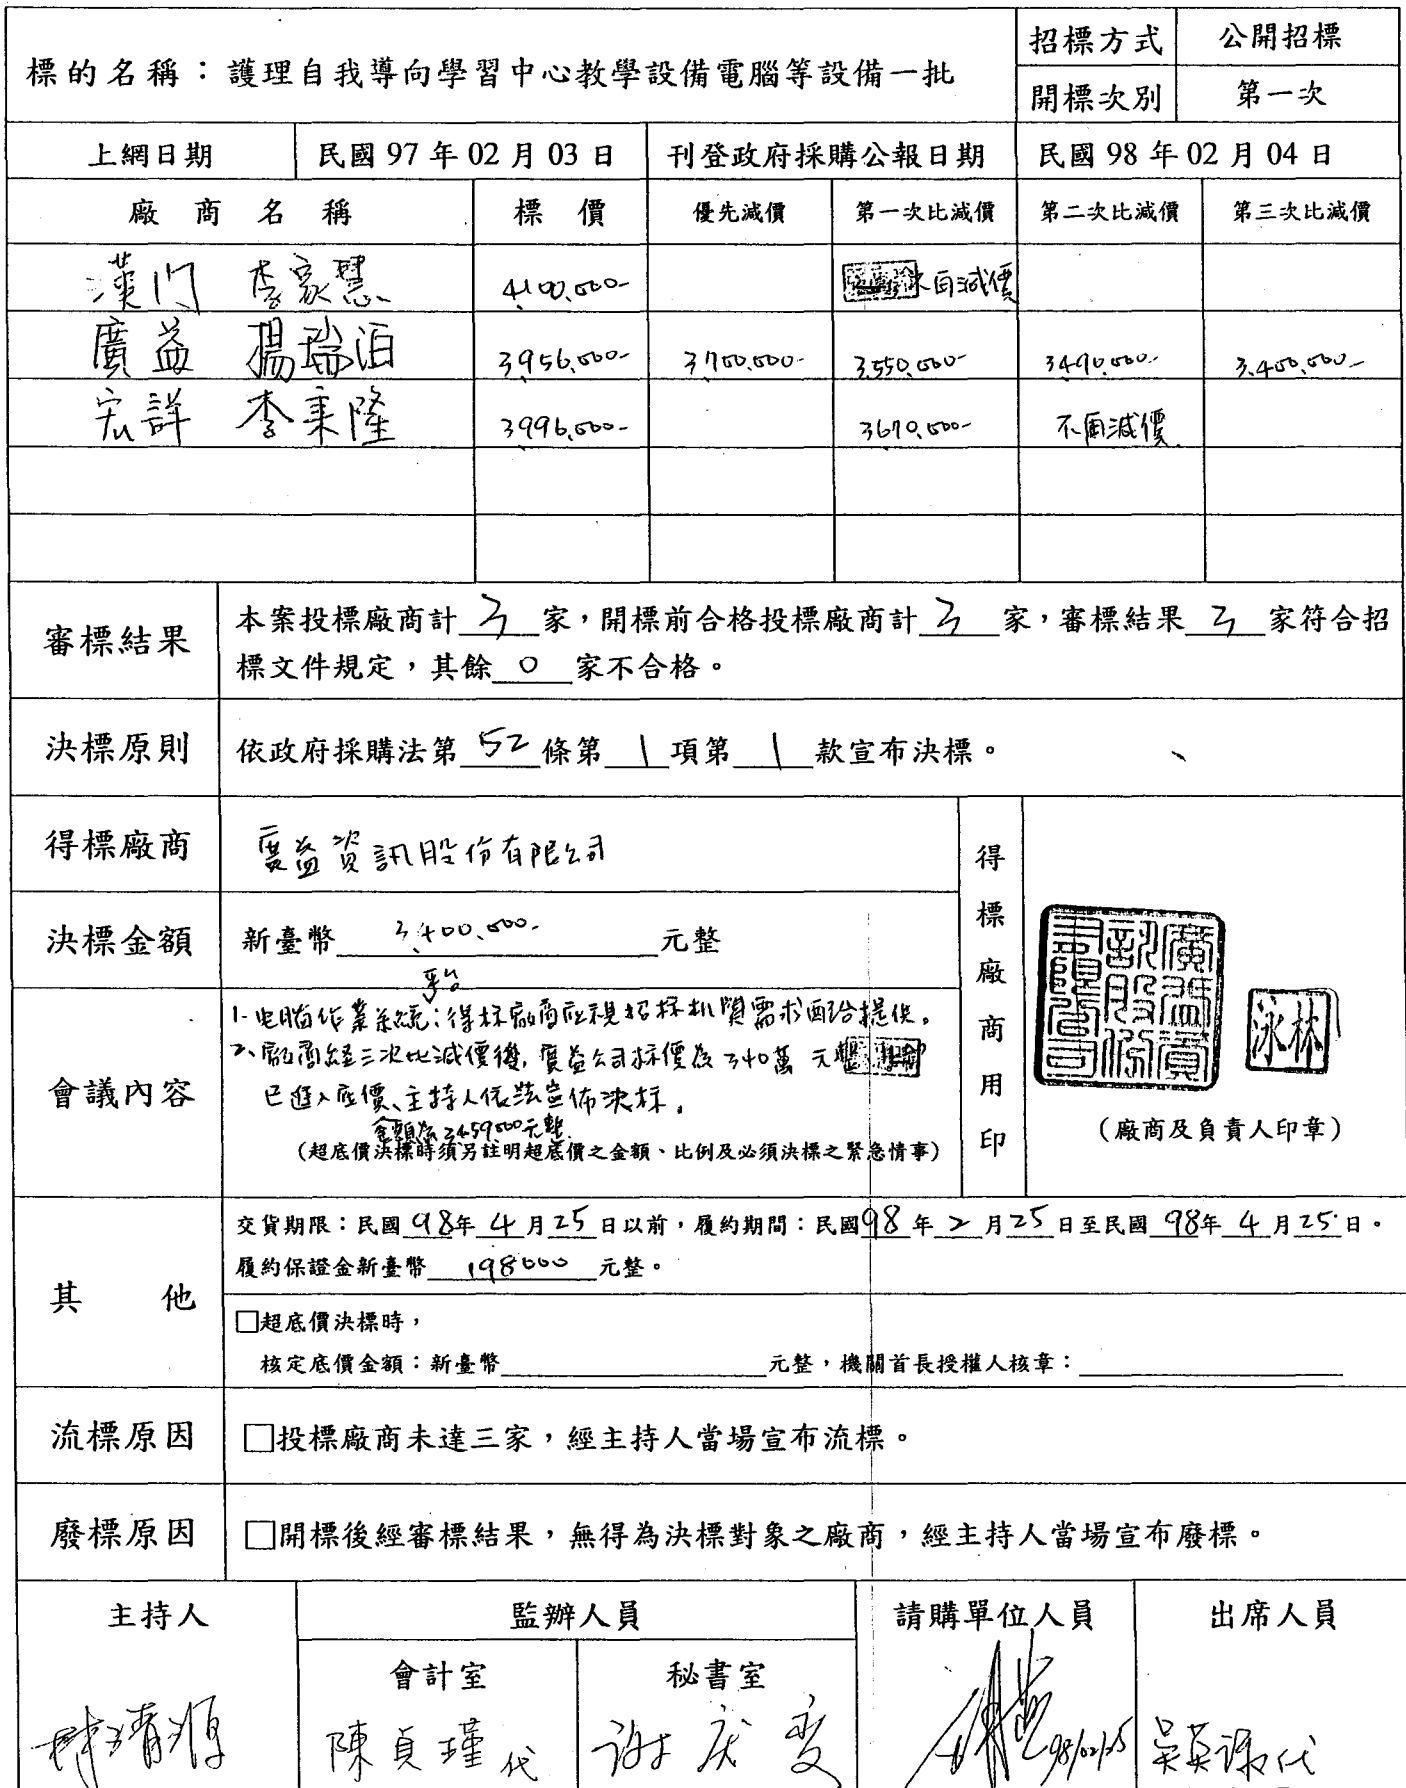 標的名稱：護理自我導向學習中心教學設備電腦等設備一批
招標方式 公開招標
開標次別 第一次
上網日期 民國 97 年 02 月 03 日 刊登政府採購公報日期 民國 98 年 02 月 04 日
廠商名稱 標價 優先減價 第一次比減價 第二次比減價 第三次比減價
漢門 李家慧 4,100,000- 減價
廣益 楊瑞泊 3,956,000- 3,700,000- 3,550,000- 3,490,000- 3,400,000-
宏詳 李秉隆 3,996,000- 3,670,000- 不再減價
審標結果
本案投標廠商計 3 家，開標前合格投標廠商計 3 家，審標結果 3 家符合招
標文件規定，其餘 0 家不合格。
決標原則 依政府採購法第 52 條第 1 項第 1 款宣布決標。
得標廠商 廣益資訊股份有限公司
決標金額 新臺幣 3,400,000- 元整
得標廠商用印
廣益資訊股份有限公司
林泳
（廠商及負責人印章）
會議內容
平台
1. 电腦作業系統：得标廠商应視招标机買需求配合提供。
2、廠商經三次比減價後，廣益公司标價為340萬元整
已進入底價、主持人依法宣佈決标。
金額為3459000元整
（超底價決標時須另註明超底價之金額、比例及必須決標之緊急情事）
其他
交貨期限：民國 98 年 4 月 25 日以前，履約期間：民國 98 年 2 月 25 日至民國 98 年 4 月 25 日。
履約保證金新臺幣 198000 元整。
□超底價決標時，
核定底價金額：新臺幣 元整，機關首長授權人核章：
流標原因 □投標廠商未達三家，經主持人當場宣布流標。
廢標原因 □開標後經審標結果，無得為決標對象之廠商，經主持人當場宣布廢標。
主持人 監辦人員 請購單位人員 出席人員
會計室 秘書室
陳貞瑾代 98/02/25